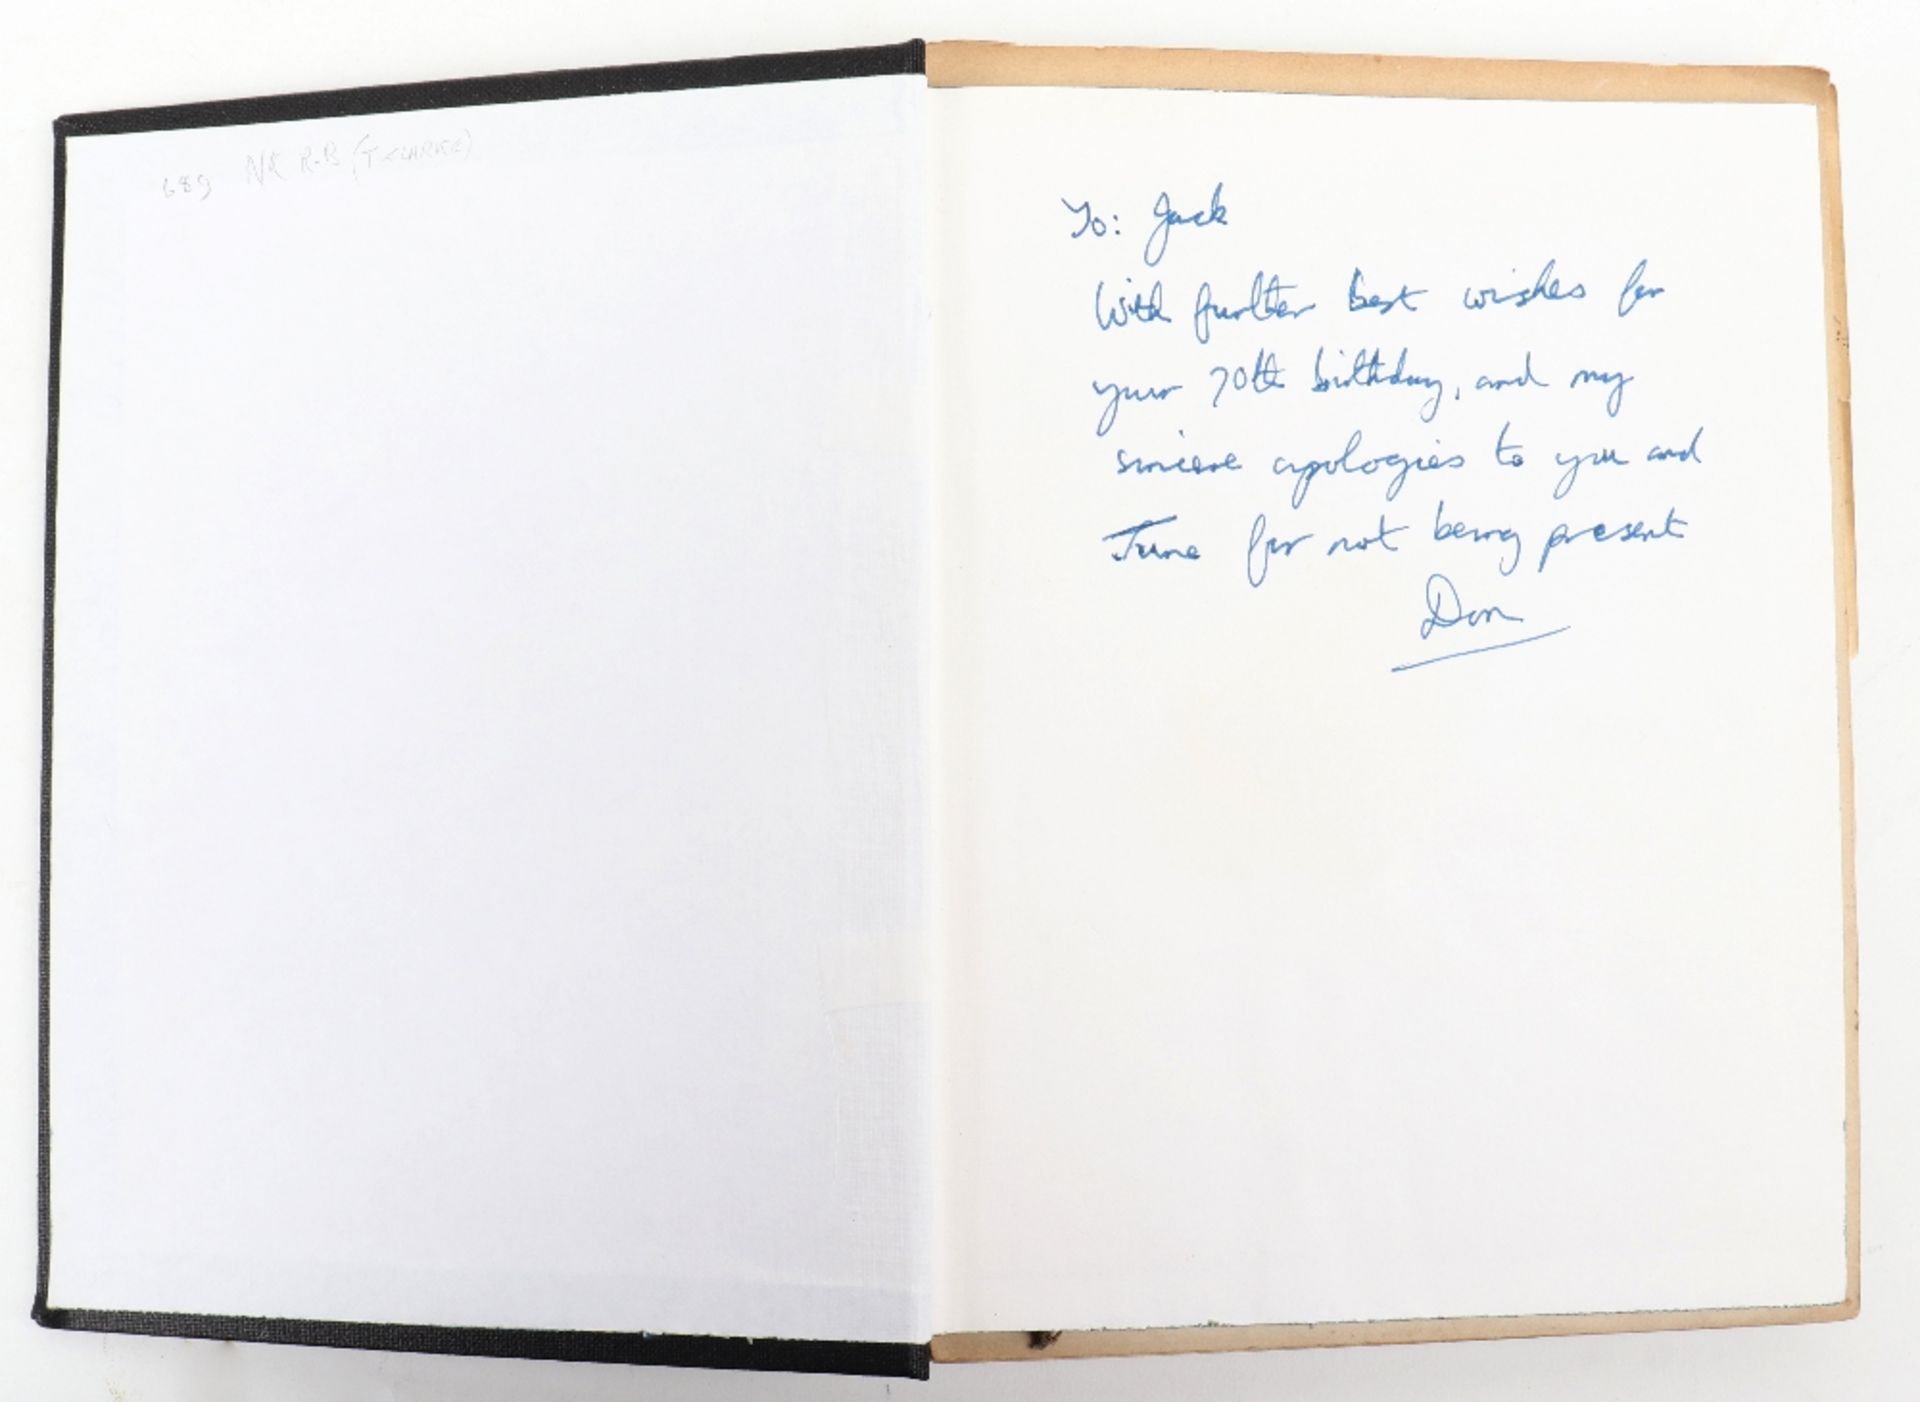 689 NR R.B (T CLARKE)
To: Jack
With further best wishes for
your 70th birthday, and my
sincere apologies to you and
June for not being present
Don